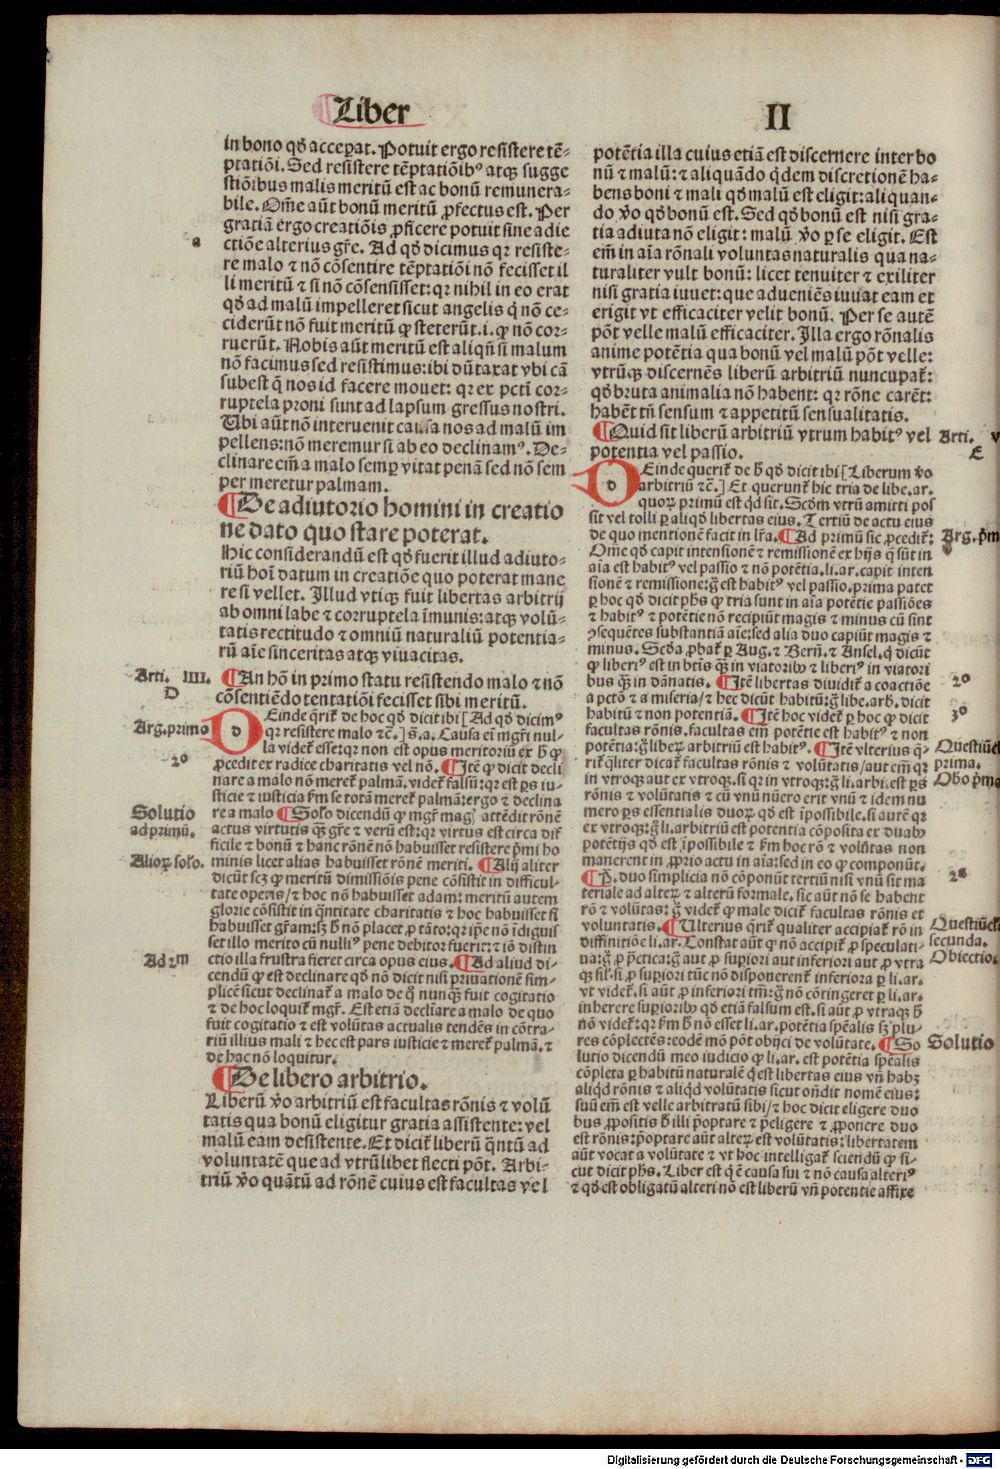 Liber
II
in bono qd̄ acceꝑat. Potuit ergo resistere tē-
ptatiōi. Sed resistere tēptatiōibꝰ atqꝫ sugge
stiōibus malis meritū est ac bonū remunera-
bile. Om̄e aūt bonū meritū ꝓfectus est. Per
gratiā ergo creatiōis ꝓficere potuit sine adie
ctiōe alterius gr̄e. Ad qd̄ dicimus qꝛ resiste-
re malo ⁊ nō cōsentire tēptatiōi nō fecisset il
li meritū ⁊ si nō cōsensisset: qꝛ nihil in eo erat
qd̄ ad malū impelleret sicut angelis q̇ nō ce-
ciderūt nō fuit meritū ꝙ steterūt .i. ꝙ nō cor-
ruerūt. Nobis aūt meritū est aliqn̄ si malum
nō facimus sed resistimus: ibi dūtaxat vbi cā
subest q̄ nos id facere mouet: qꝛ ex pctī cor-
ruptela proni sunt ad lapsum gressus nostri.
Ubi aūt nō interuenit causa nos ad malū im
pellens: nō meremur si ab eo declinamꝰ. De-
clinare em̄ a malo semꝑ vitat penā sed nō sem
per meretur palmam.
a
¶ De adiutorio homini in creatio
ne dato quo stare poterat.
Hic considerandū est qd̄ fuerit illud adiuto-
riū hoī datum in creatiōe quo poterat mane
re si vellet. Illud vtiqꝫ fuit libertas arbitrij
ab omni labe ⁊ corruptela īmunis: atqꝫ volū-
tatis rectitudo ⁊ omniū naturaliū potentia-
rū aīe sinceritas atqꝫ viuacitas.
Arti. IIII.
D
¶ An hō in primo statu resistendo malo ⁊ nō
cōsentiēdo tentatiōi fecisset sibi meritū.
Arg. primo
d
Einde q̄rit̄ de hoc qd̄ dicit ibi [Ad qd̄ dicimꝰ
qꝛ resistere malo ⁊c̄.] s̄.a. Causa em̄ mgr̄i nul-
la videt̄ esse: qꝛ non est opus meritoriū ex ħ ꝙ
ꝓcedit ex radice charitatis vel nō. ¶ Itē ꝙ dicit decli
2º
nare a malo nō meret̄ palmā. videt̄ falsū: qꝛ est ꝑs iu-
sticie ⁊ iusticia ẜm se totā meret̄ palmā: ergo ⁊ declina
re a malo ¶ Solo dicendū ꝙ mgr̄ mag̃ attēdit rōnē
Solutio
ad primū.
actus virtutis q̈ꝫ gr̄e ⁊ verū est: qꝛ virtus est circa dif
ficile ⁊ bonū ⁊ hanc rōnē nō habuisset resistere p̄mi ho
minis licet alias habuisset rōnē meriti. ¶ Alij aliter
Alioꝝ solo.
dicūt scꝫ ꝙ meritū dimissiōis pene cōsistit in difficul-
tate operis/ ⁊ hoc nō habuisset adam: meritū autem
glorie cōsistit in q̄ntitate charitatis ⁊ hoc habuisset si
habuisset gr̄am: sꝫ ħ nō placet ꝓ tāto: qꝛ ip̄e nō īdiguis
set illo merito cū nulliꝰ pene debitor fuerit: ⁊ iō distin
ctio illa frustra fieret circa opus eius. ¶ Ad aliud di-
Ad 2m
cendū ꝙ est declinare qd̄ nō dicit nisi priuationē sim-
plicē sicut declinat̄ a malo de q̊ nunqꝫ fuit cogitatio
⁊ de hoc loquit̄ mgr̄. Est etiā decliare a malo de quo
fuit cogitatio ⁊ est volūtas actualis tendēs in cōtra-
riū illius mali ⁊ hec est pars iusticie ⁊ meret̄ palmā. ⁊
de hac nō loquitur.
¶ De libero arbitrio.
Liberū v̊o arbitriū est facultas rōnis ⁊ volū
tatis qua bonū eligitur gratia assistente: vel
malū eam desistente. Et dicit̄ liberū q̄ntū ad
voluntatē que ad vtrūlibet flecti pōt. Arbi-
triū v̊o quātū ad rōnē cuius est facultas vel
potētia illa cuius etiā est discernere inter bo
nū ⁊ malū: ⁊ aliquādo q̇dem discretionē ha-
bens boni ⁊ mali qd̄ malū est eligit: aliquan-
do v̊o qd̄ bonū est. Sed qd̄ bonū est nisi gra-
tia adiuta nō eligit: malū v̊o ꝑ se eligit. Est
em̄ in aīa rōnali voluntas naturalis qua na-
turaliter vult bonū: licet tenuiter ⁊ exiliter
nisi gratia iuuet: que adueniēs iuuat eam et
erigit vt efficaciter velit bonū. Per se autē
pōt velle malū efficaciter. Illa ergo rōnalis
anime potētia qua bonū vel malū pōt velle:
vtrūqꝫ discernēs liberū arbitriū nuncupat̄:
qd̄ bruta animalia nō habent: qꝛ rōne carēt:
habēt tn̄ sensum ⁊ appetitū sensualitatis.
¶ Quid sit liberū arbitriū vtrum habitꝰ vel
potentia vel passio.
Arti. v
E
d
Einde querit̄ de ħ qd̄ dicit ibi [Liberum v̊o
arbitriū ⁊c̄.] Et querunt̄ hic tria de libe. ar.
quoꝝ primū est qd̄ sit. Scdm vtrū amitti pos
sit vel tolli ꝑ aliqd̄ libertas eius. Tertiū de actu eius
de quo mentionē facit in lr̄a. ¶ Ad primū sic ꝓcedit̄:
Arg. pm
Om̄e qd̄ capit intensionē ⁊ remissionē ex hijs q̄ sūt in
aīa est habitꝰ vel passio ⁊ nō potētia. li. ar. capit inten
sionē ⁊ remissionē: g̊ est habitꝰ vel passio. prima patet
ꝑ hoc qd̄ dicit ph̄s ꝙ tria sunt in aīa potētie passiōes
⁊ habitꝰ ⁊ potētie nō recipiūt magis ⁊ minus cū sint
ꝯsequētes substantiā aīe: sed alia duo capiūt magis ⁊
minus. Scd̄a ꝓbat̄ ꝑ Aug. ⁊ Berñ. ⁊ Ansel. q̇ dicūt
ꝙ liberiꝰ est in btīs q̈ꝫ in viatoribꝰ ⁊ liberiꝰ in viatori
bus q̈ꝫ in dānatis. ¶ Itē libertas diuidit̄ a coactiōe
2º
a pctō ⁊ a miseria/ ⁊ hec dicūt habitū: g̊ libe. arb. dicit
habitū ⁊ non potentiā. ¶ Itē hoc videt̄ ꝑ hoc ꝙ dicit
3º
facultas rōnis. facultas em̄ potētie est habitꝰ ⁊ non
potētia: g̊ liberꝝ arbitriū est habitꝰ. ¶ Itē vlterius q̄-
Questiūcl
prima.
Obo pma
rit̄ q̄liter dicat̄ facultas rōnis ⁊ volūtatis/ aut em̄ qꝛ
in vtroqꝫ aut ex vtroqꝫ. si qꝛ in vtroqꝫ: g̊ li. arbi. est ꝑs
rōnis ⁊ volūtatis ⁊ cū vnū nūero erit vnū ⁊ idem nu
mero ꝑs essentialis duoꝝ qd̄ est īpossibile. si autē qꝛ
ex vtroqꝫ: g̊ li. arbitriū est potentia cōposita ex duabꝰ
potētijs qd̄ est īpossibile ⁊ ẜm hoc rō ⁊ volūtas non
manerent in ꝓprio actu in aīa: sed in eo ꝙ componūt.
¶ P̄. duo simplicia nō cōponūt tertiū nisi vnū sit ma
2ª
teriale ad alteꝝ ⁊ alterū formale. sic aūt nō se habent
rō ⁊ volūtas: g̊ videt̄ ꝙ male dicit̄ facultas rōnis et
voluntatis. ¶ Ulterius q̄rit̄ qualiter accipiat̄ rō in
Questiūcl
secunda.
Obiectio.
diffinitiōe li. ar. Constat aūt ꝙ nō accipit̄ ꝓ speculati-
ua: g̊ ꝓ p̄ctica: g̊ aut ꝓ supiori aut inferiori aut ꝓ vtra
qꝫ sil̄. si ꝓ supiori tūc nō disponerent̄ inferiora ꝑ li. ar.
vt videt̄. si aūt ꝓ inferiori tm̄: g̊ nō cōtingeret ꝑ li. ar.
inherere suꝑioribꝰ qd̄ etiā falsum est. si aūt ꝓ vtraqꝫ ħ
nō videt̄: qꝛ ẜm ħ nō esset li. ar. potētia spēalis sꝫ plu-
res cōplectēs: eodē mō pōt obijci de volūtate. ¶ So
Solutio
lutio dicendū meo iudicio ꝙ li. ar. est potētia spēalis
cōpleta ꝑ habitū naturalē q̇ est libertas eius vn̄ habꝫ
aliqd̄ rōnis ⁊ aliqd̄ volūtatis sicut on̄dit nomē eius:
suū em̄ est velle arbitratū sibi/ ⁊ hoc dicit eligere duo
bus ꝓpositis ħ illi p̄optare ⁊ p̄eligere ⁊ ꝓponere duo
est rōnis: p̄optare aūt alteꝝ est volūtatis: libertatem
aūt vocat a volūtate ⁊ vt hoc intelligat̄ sciendū ꝙ si-
cut dicit ph̄s. Liber est q̇ ē causa sui ⁊ nō causa alteriꝰ
⁊ qd̄ est obligatū alteri nō est liberū vn̄ potentie affixe
Digitalisierung gefördert durch die Deutsche Forschungsgemeinschaft - DFG